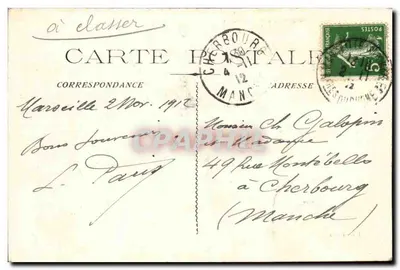 à classer
CARTE POSTALE
CORRESPONDANCE
ADRESSE
CHERBOURG
7 30
4 11
12
MANCHE
POSTES
Marseille 2 Nov. 1912
Bons Souvenirs
L. Paris
Monsieur Ch Galopin
et Madame
49 Rue Montebello
à Cherbourg
(Manche)